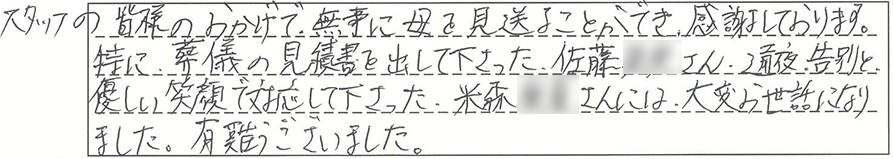 スタッフの皆様のおかげで、無事に母を見送ることができ、感謝しております。
特に、葬儀の見積書を出して下さった、佐藤 さん、通夜、告別と、
優しい笑顔で対応して下さった、米森 さんには、大変お世話になり
ました。有難うございました。